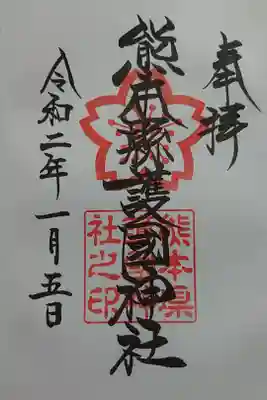 奉拝
熊本縣護國神社
熊本県
護國神
社之印
令和二年一月五日